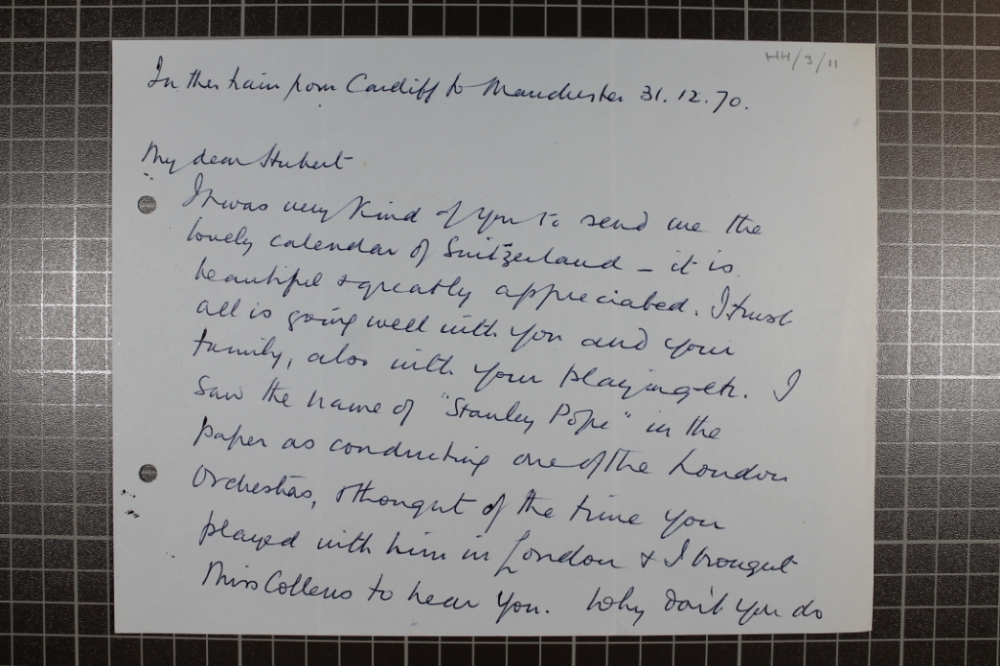 HH/3/11
In the train from Cardiff to Manchester 31.12.70.
My dear Hubert
It was very kind of you to send me the
lovely calendar of Switzerland – it is
beautiful & greatly appreciated. I trust
all is going well with you and your
family, also with your playing etc. I
saw the name of "Stanley Pope" in the
paper as conducting one of the London
Orchestras, & thought of the time you
played with him in London & I brought
Miss Collens to hear you. Why don't you do